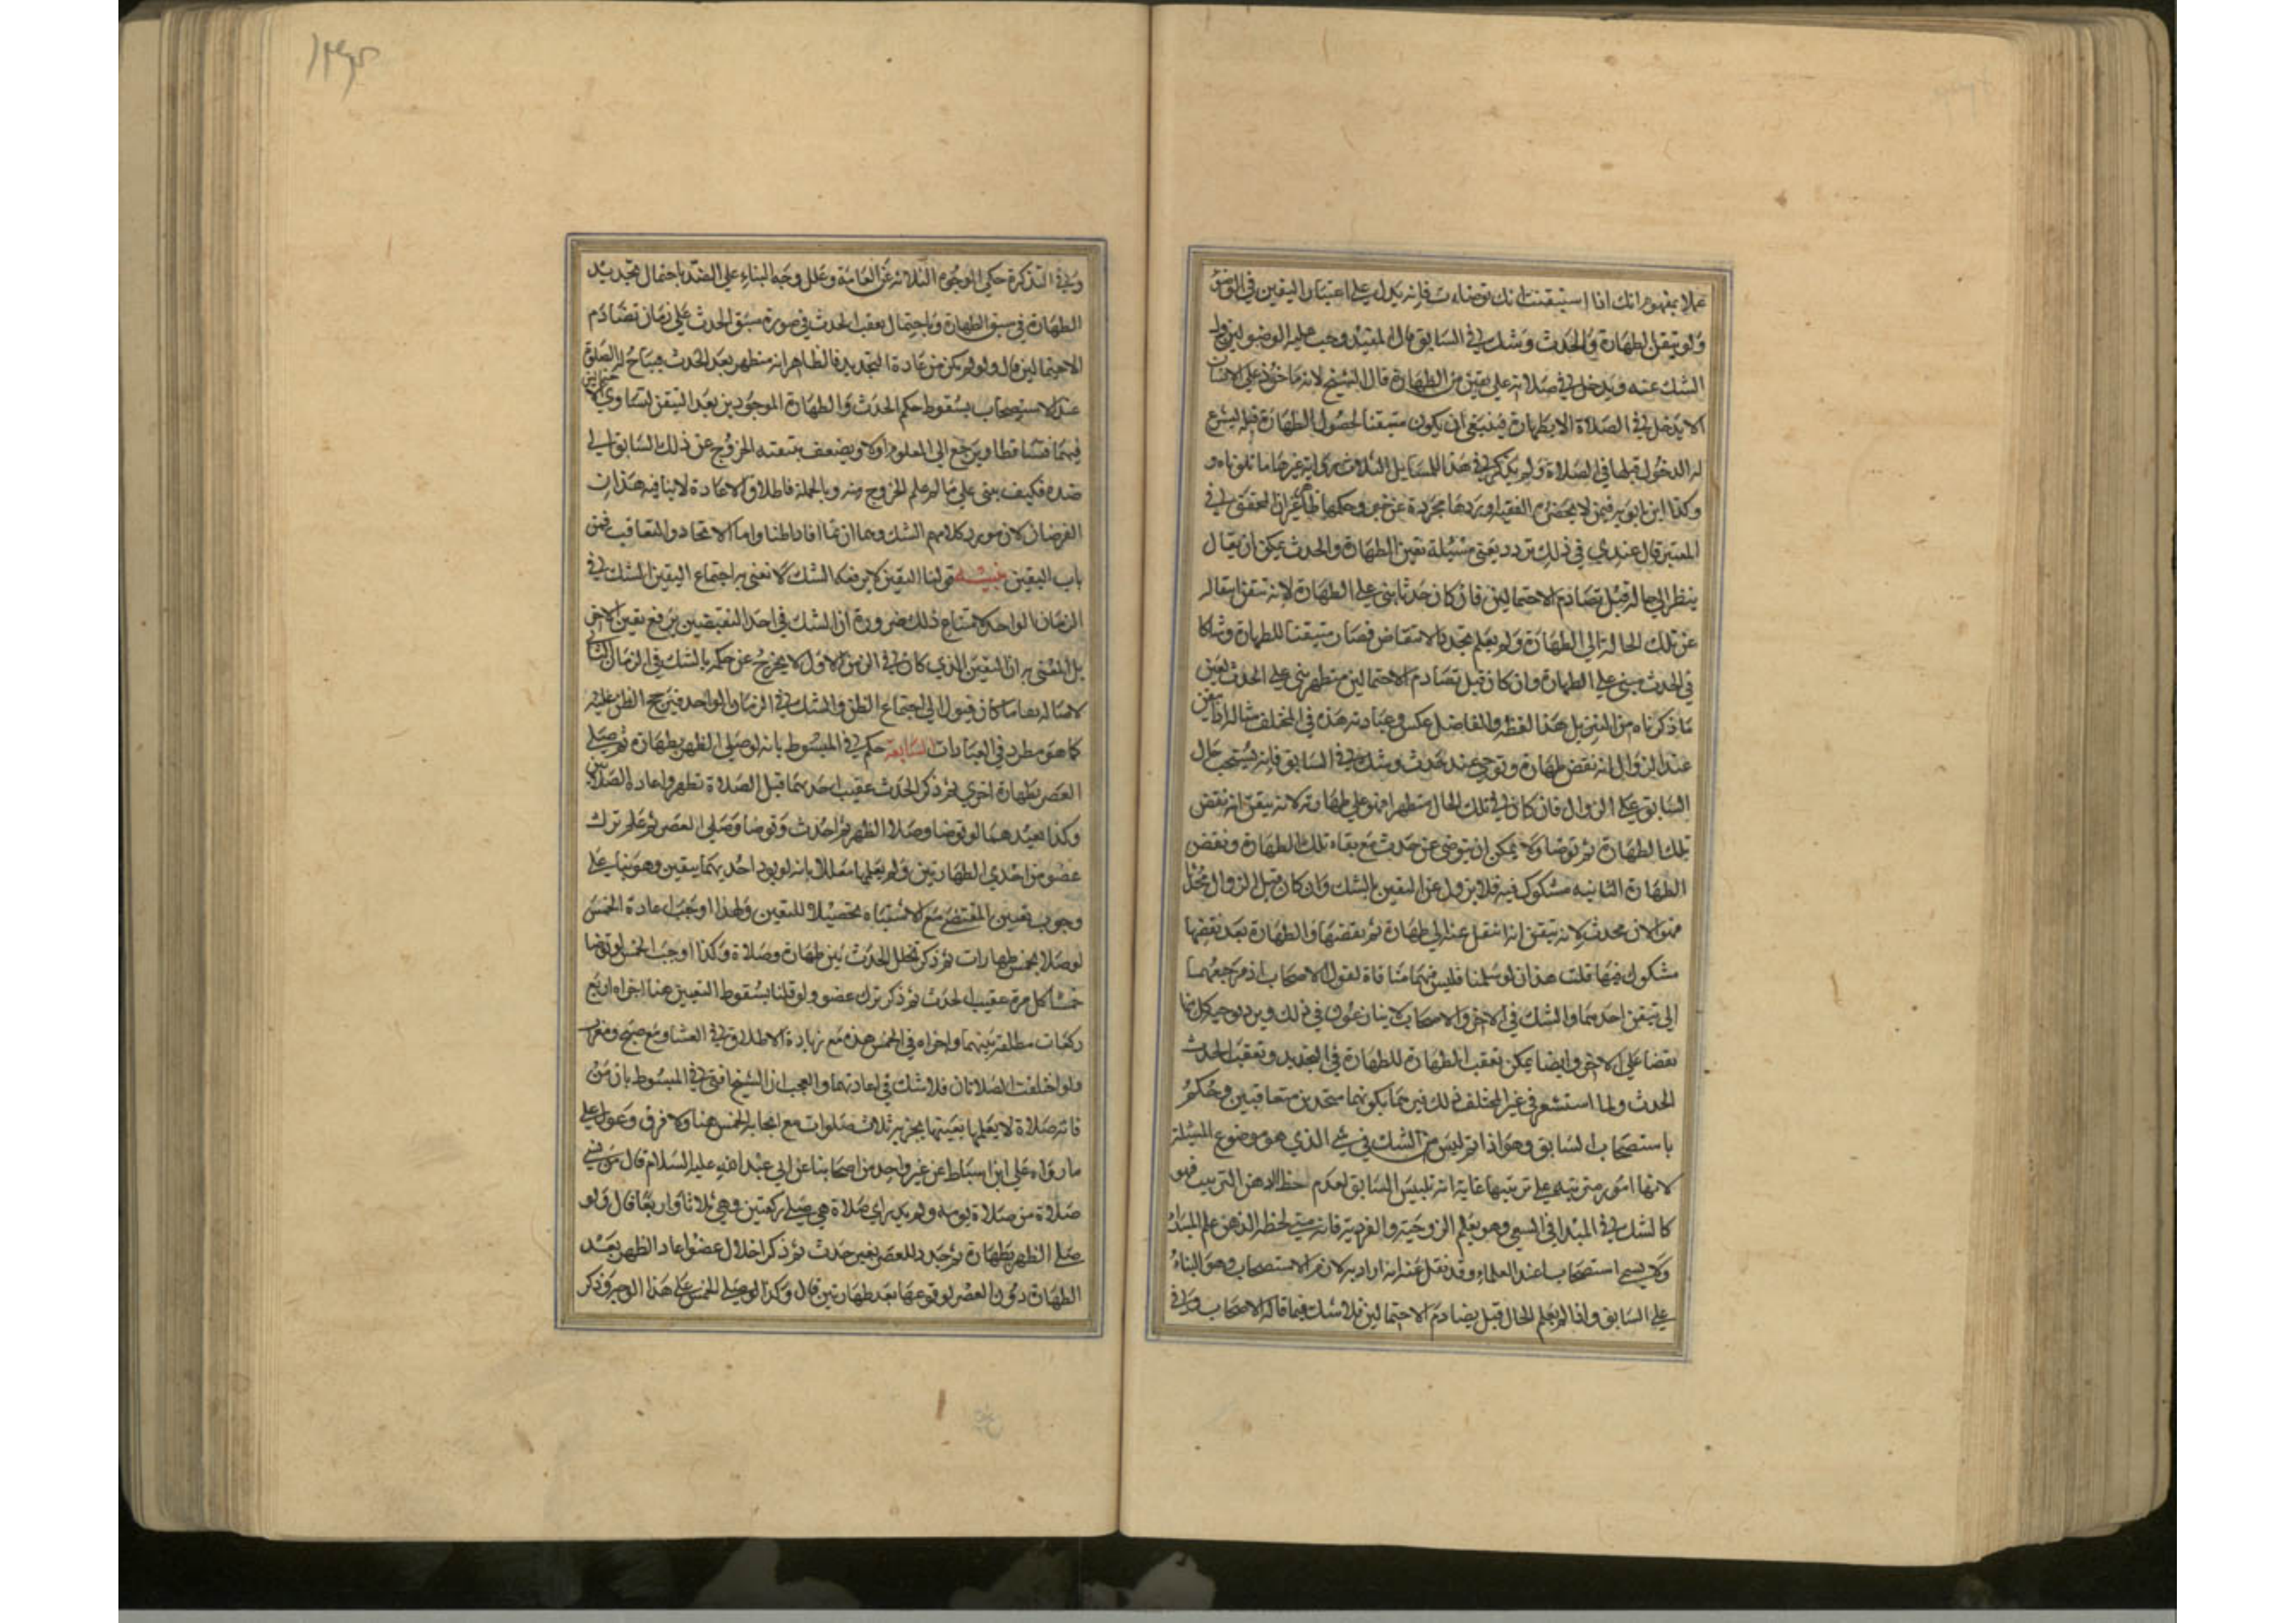 عملا بمفهوم انك اذا استيقنت انك توضات فانه يدل على اعتبار اليقين في الوضوء
ولو تيقن الطهارة والحدث وشك في السابق قال المفيد وجب عليه الوضوء ليزول
الشك عنه ويدخل في صلاته على يقين من الطهارة قال الشيخ لانه ماخوذ على الانسان
الا يدخل في الصلاة الا بطهارة فينبغي ان يكون متيقنا لحصول الطهارة قبله ليسوغ
له الدخول بها في الصلاة ولم يذكر في هذه المسايل الثلاث رواية غير ما تلوناه و
وكذا ابن بابويه فيمن لا يحضره الفقيه اوردها مجردة عن خبر وحكمها ظاهر غير ان المحقق في
المعتبر قال عندي في ذلك تردد يعني مسئلة تيقن الطهارة والحدث يمكن ان يقال
ينظر الى حاله قبل تصادم الاحتمالين فان كان حدثا بنى على الطهارة لانه تيقن انتقاله
عن تلك الحالة الى الطهارة ولم يعلم تجدد الانتقاض فصار متيقنا للطهارة وشاكا
في الحدث فيبني على الطهارة وان كان قبل تصادم الاحتمالين متطهر بنى على الحدث لعين
ما ذكرناه من التنزيل هذا لفظه والفاضل عكس وعبارته هذه في المختلف مثاله اذا تيقن
عند الزوال انه نقض طهارة وتوضى عن حدث وشك في السابق فانه يستصحب حال
السابق على الزوال فان كان في تلك الحال متطهرا فهو على طهارته لانه تيقن انه نقض
تلك الطهارة ثم توضا ولا يمكن ان يتوضى عن حدث مع بقاء تلك الطهارة ونقض
الطهارة الثانية مشكوك فيه فلا يزول عن اليقين بالشك وان كان قبل الزوال محدثا
فهو الان محدث لانه تيقن انه انتقل عنه الى طهارة ثم نقضها والطهارة بعد نقضها
مشكوك فيها قلت هذان لو سلمنا فليس فيهما منافاة لقول الاصحاب اذ مرجعهما
الى تيقن احدهما والشك في الاخر والاصحاب لا ينازعون في ذلك ويرد توجيه كل منهما
نقضا على الاخر وايضا يمكن تعقب الطهارة للطهارة في التجديد وتعقب الحدث
الحدث ولما استشعر في غير المختلف ذلك قيدهما بكونهما متحدين متعاقبين وحكم
باستصحاب السابق وهو اذا تم ليس من الشك في شي الذي هو موضوع المسئلة
لانها امور مترتبة على ترتيبها غاية انه تلبيس السابق لعدم لحظ الذهن الترتيب فهو
كالشك في المبدا في السعي وهو يعلم الزوجية والفردية فانه متى لحظ الذهن علم المبدا
ولا يسمى استصحابا عند العلماء وقد نقل عنه انه اراد به لازم الاستصحاب وهو البناء
على السابق واذا لم يعلم الحال قبل تصادم الاحتمالين فلا شك فيما قاله الاصحاب وفي
وفي التذكرة حكى الوجوه الثلاثة عن العامة وعلل وجه البناء على الضد باحتمال تجديد
الطهارة في سبق الطهارة وباحتمال تعقب الحدث في صورة سبق الحدث على زمان تصادم
الاحتمالين قال ولو لم يكن من عادة التجديد فالظاهر انه متطهر بعد الحدث فيباح له الصلوة
عملا بالاستصحاب بسقوط حكم الحدث والطهارة الموجودين بعد التيقن لتساوي الاحتمالين
فيهما فتساقطا ويرجع الى المعلوم اولا ويضعف بتيقنه الخروج عن ذلك السابق الى
ضده فكيف يبنى على ما لم علم الخروج منه وبالجملة فاطلاق الاعادة لا ينافيه هذان
الفرضان لان مورد كلامهم الشك وهما ان تما افادا ظنا واما الاتحاد والتعاقب فمن
باب اليقين تنبيه قولنا اليقين لا يرفعه الشك لا نعني به اجتماع اليقين والشك في
الزمان الواحد لامتناع ذلك ضرورة ان الشك في احد النقيضين يرفع يقين الاخر
بل المعنى به ان اليقين الذي كان في الزمن الاول لا يخرج عن حكمه بالشك في الزمان الثاني
لاصالة بقا ما كان فيؤول الى اجتماع الظن والشك في الزمان الواحد فيرجح الظن عليه
كما هو مطرد في العبادات السابعة حكم في المبسوط بانه لو صلى الظهر بطهارة ثم صلى
العصر بطهارة اخرى ثم ذكر الحدث عقيب احديهما قبل الصلاة تطهر واعاد الصلاتين
وكذا يعيدهما لو توضا وصلا الظهر ثم احدث وتوضا وصلى العصر ثم علم ترك
عضو من احدي الطهارتين ولم يعلمها معللا بانه لم يود احديهما بيقين وهو بنا على
وجوب تعيين المقتضى مع الاشتباه تحصيلا لليقين ولهذا اوجب اعادة الخمس
لو صلا بخمس طهارات ثم ذكر تخلل الحدث بين طهارة وصلاة وكذا اوجب الخمس لو توضا
خمسا كل مرة عقيب الحدث ثم ذكر ترك عضو ولو قلنا بسقوط التعيين هنا اجزاه اربع
ركعات مطلقة بينهما واجزاه في الخمس هذه مع زيادة الاطلاق في العشا ومع صبح ومغرب
ولو اختلفت الصلاتان فلا شك في اعادتهما والعجب ان الشيخ افتى في المبسوط بان من
فاته صلاة لا يعلمها بعينها يجزيه ثلاث صلوات مع ايجابه الخمس هنا ولا فرق وعول على
ما رواه علي ابن اسباط عن غير واحد من اصحابنا عن ابي عبد الله عليه السلام قال من نسي
صلاة من صلاة يومه ولم يدر اي صلاة هي صلى ركعتين وهي ثلاثا واربعا قال ولو
صلى الظهر بطهارة ثم جدد للعصر بغير حدث ثم ذكر اخلال عضو اعاد الظهر بعد
الطهارة دون العصر لوقوعها بعد طهارتين قال وكذا لو صلى الخمس على هذا الوجه وذكر